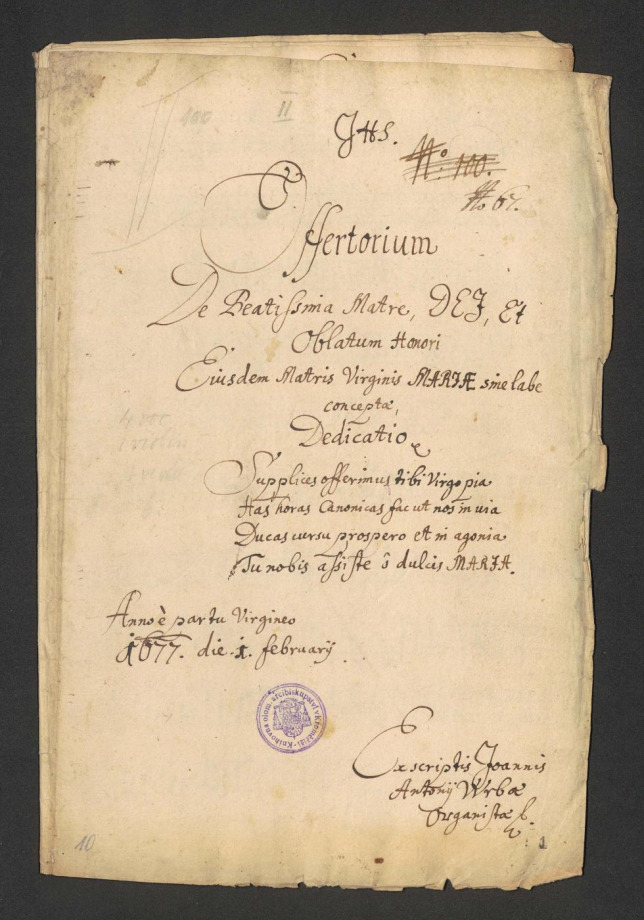 100
II
JHS.
No. 100.
No 67.
Offertorium
De Beatissima Matre, DEJ, Et
Oblatum Honori
Eiusdem Matris Virginis MARIÆ sine labe
conceptæ,
Dedicatio
Supplices offerimus tibi Virgo pia
Has horas Canonicas fac ut nos in via
Ducas cursu prospero et in agonia
Tu nobis assiste ô dulcis MARIA.
4 voc
violin
Anno è partu Virgineo
1677. die 1. february
Knihovna ojom. arcibiskupství v Kroměříži
Ex scriptis Joannis
Antonij Wrbæ
Organistæ
10
1